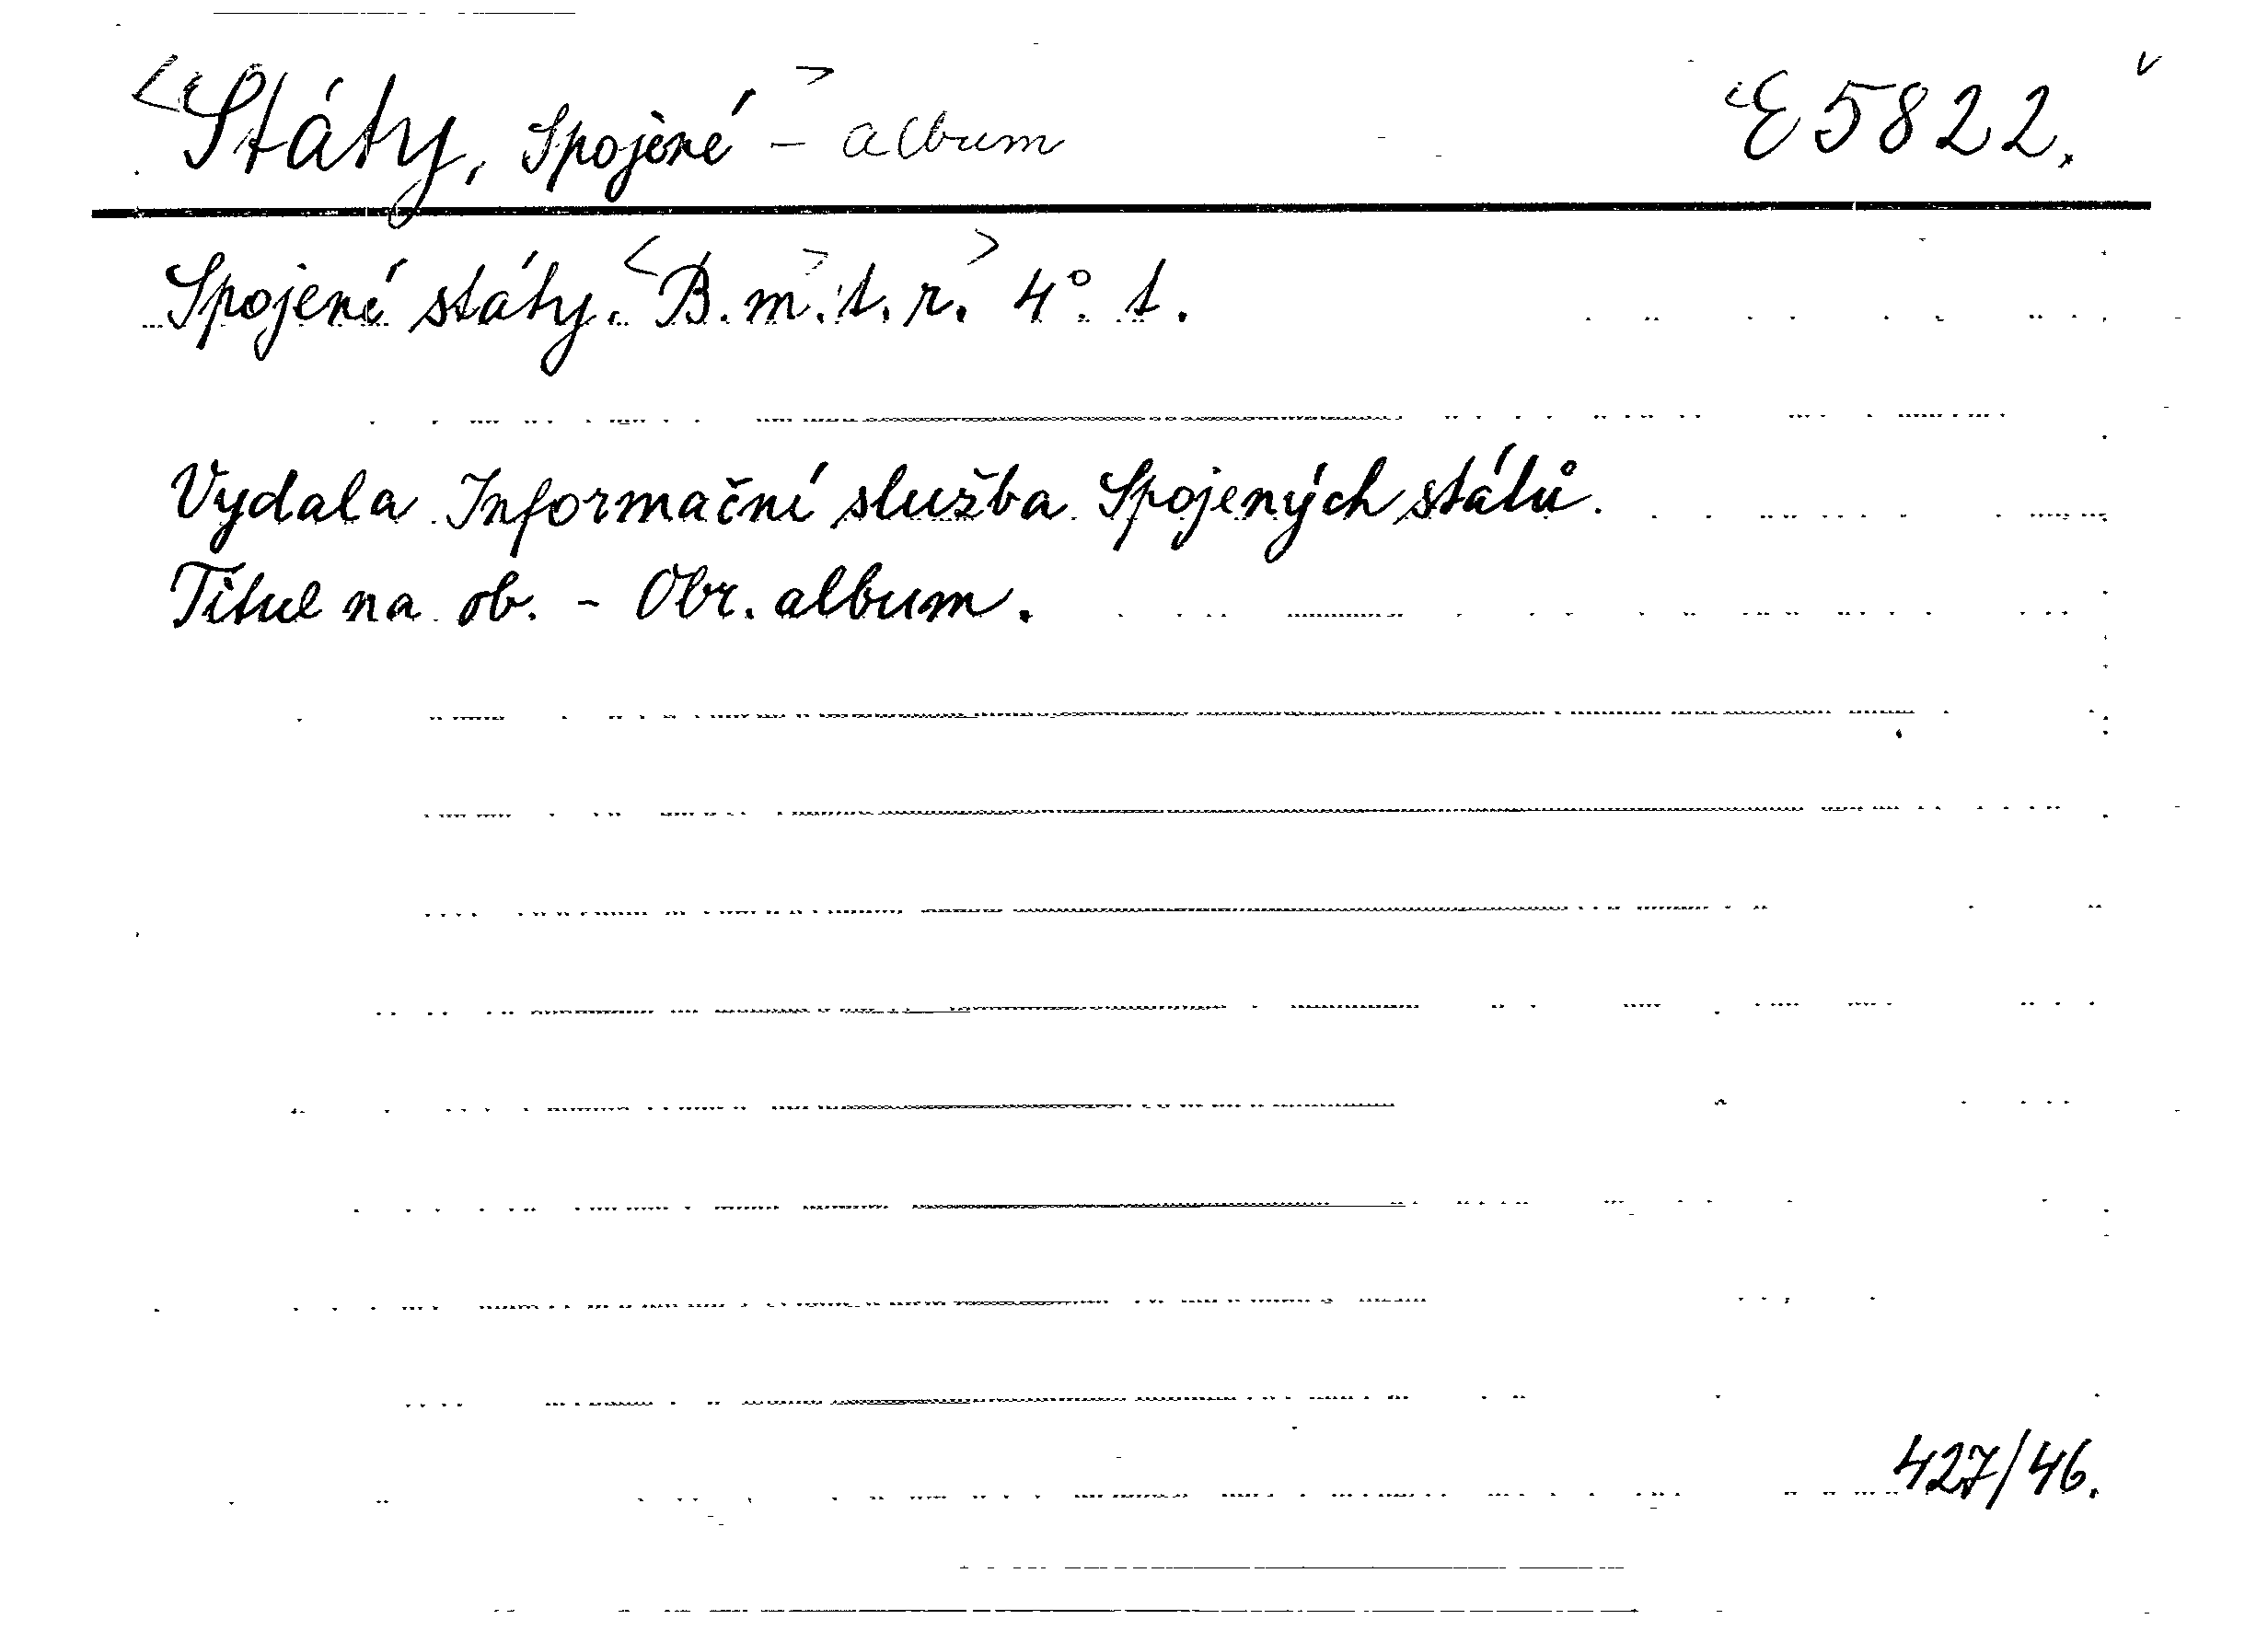 <Státy, Spojené> - album E 5822.
Spojené státy. <B. m.> t. r.> 4° t.
Vydala Informační služba Spojených států.
Titul na ob. - Obr. album.
427/46.